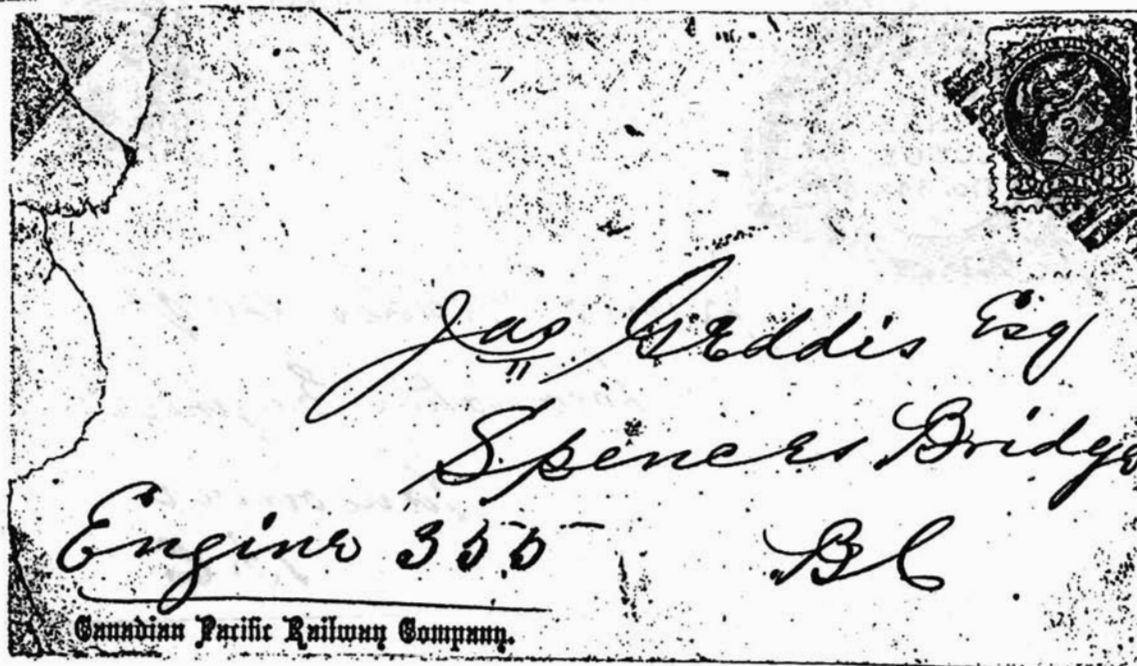 Jas Geddis Esq
Spences Bridge
Engine 355
BC
Canadian Pacific Railway Company.